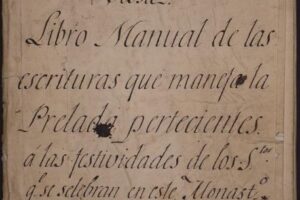 Libro Manual de las
escrituras que maneja la
Prelada pertecientes
á las festividades de los S.tos
q.e se selebran en este Monast.o